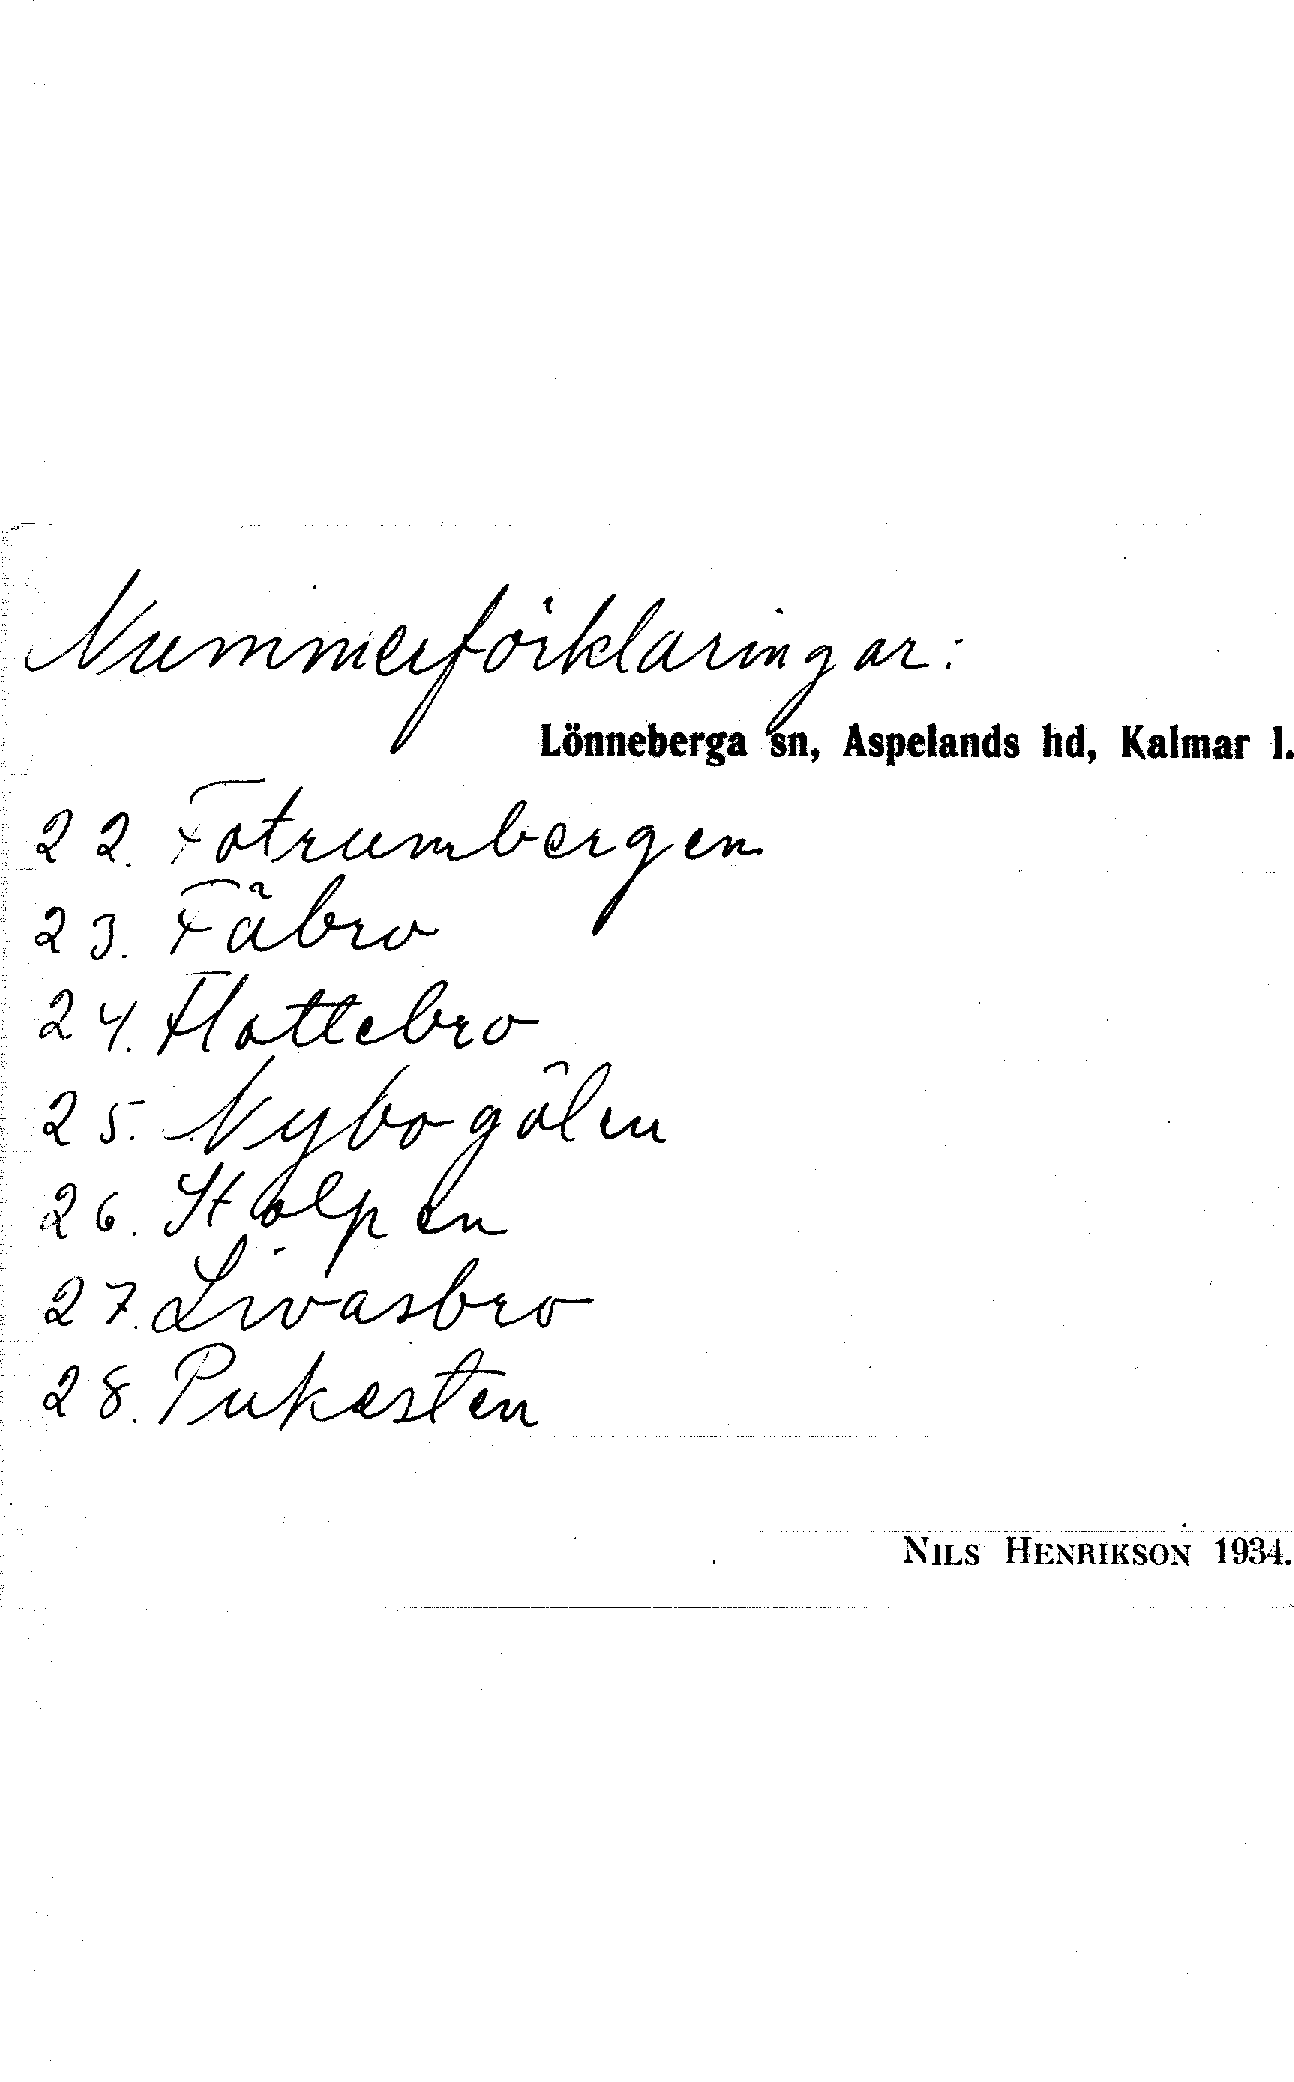 Nummerförklaringar:
Lönneberga sn, Aspelands hd, Kalmar l.
22. Fotrumbergen
23. Fåbro
24. Flottebro
25. Nybogölen
26. Stolpen
27. Livasbro
28. Pukasten
NILS HENRIKSON 1934.